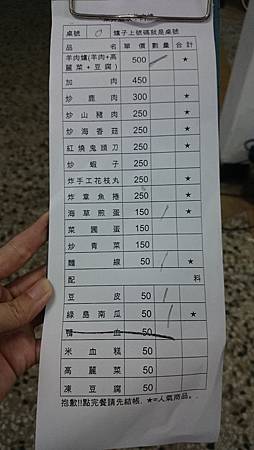 桌號 爐子上號碼就是桌號
品 名 單價 數量 合計
羊肉爐(羊肉+高麗菜+豆腐) 500 ★
加 肉 450
炒 鹿 肉 300 ★
炒 山 豬 肉 250 ★
炒 海 香 菇 250 ★
紅 燒 鬼 頭 刀 250 ★
炒 蝦 子 250
炸手工花枝丸 250 ★
炸 章 魚 捲 250 ★
海 草 煎 蛋 150 ★
菜 圃 蛋 150
炒 青 菜 150
麵 線 50 ★
配 料
豆 皮 50
綠 島 南 瓜 50 ★
鴨 血 50
米 血 糕 50
高 麗 菜 50
凍 豆 腐 50
抱歉!!點完餐請先結帳. ★=人氣商品.